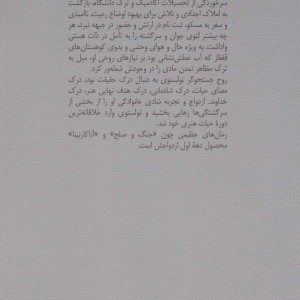 سرخوردگی از تحصیلات آکادمیک و ترک دانشگاه، بازگشت
به املاک اجدادی و تلاش برای بهبود اوضاع رعیت، ناامیدی
و سفر به مسکو، ثبت نام در ارتش و حضور در جبهه نبرد، هر
چه بیشتر لئوی جوان و سرگشته را به تأمل در ذات هستی
واداشت. به ویژه حال و هوای وحشی و بدوی کوهستان‌های
قفقاز که آب عطش‌نشانی بود بر نیازهای روحی او، میل به
ترک مظاهر تمدن مادی را در وجودش شعله‌ور کرد.
روح جستجوگر تولستوی به دنبال درک حقیقت بود، درک
معنای حیات، درک شادمانی، درک هدف نهایی هنر، درک
خداوند. ازدواج و تجربه شادی خانوادگی او را از بخشی از
سرگشتگی‌ها رهایی بخشید و تولستوی وارد خلاقانه‌ترین
دورهٔ حیات هنری خود شد.
رمان‌های عظیمی چون «جنگ و صلح» و «آناکارنینا»
محصول دههٔ اول ازدواجش است.